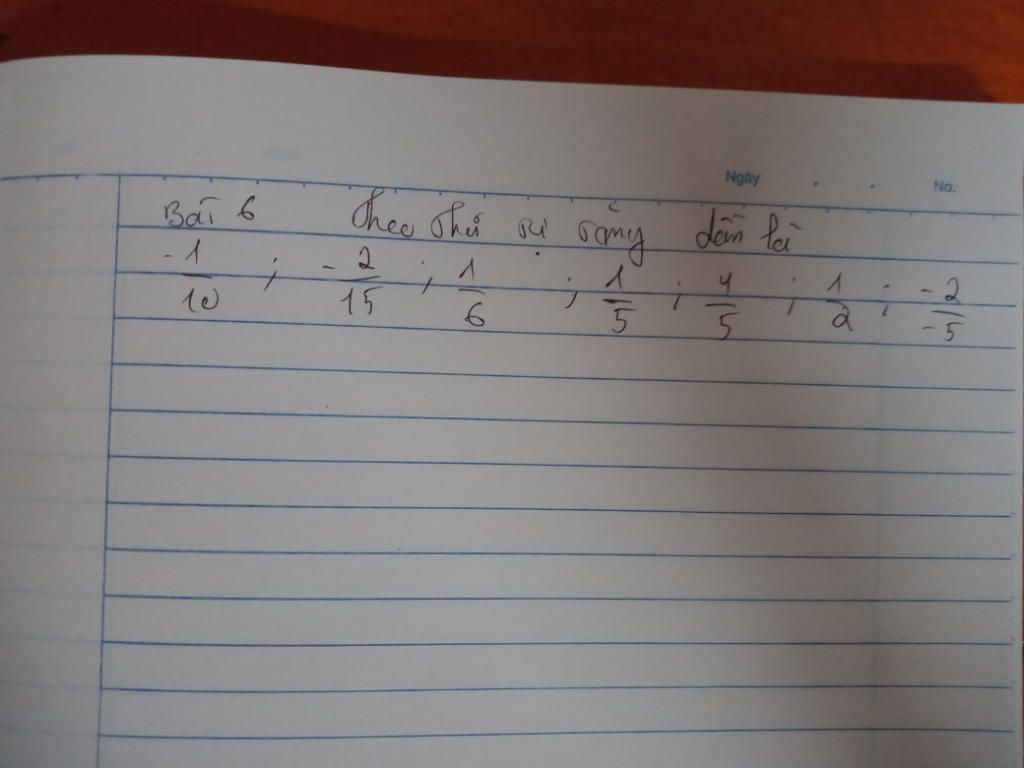 Ngày . . No.
Bài 6 Theo thứ tự tăng dần là
-1/10 ; -2/15 ; 1/6 ; 1/5 ; 4/5 ; 1/2 ; -2/-5